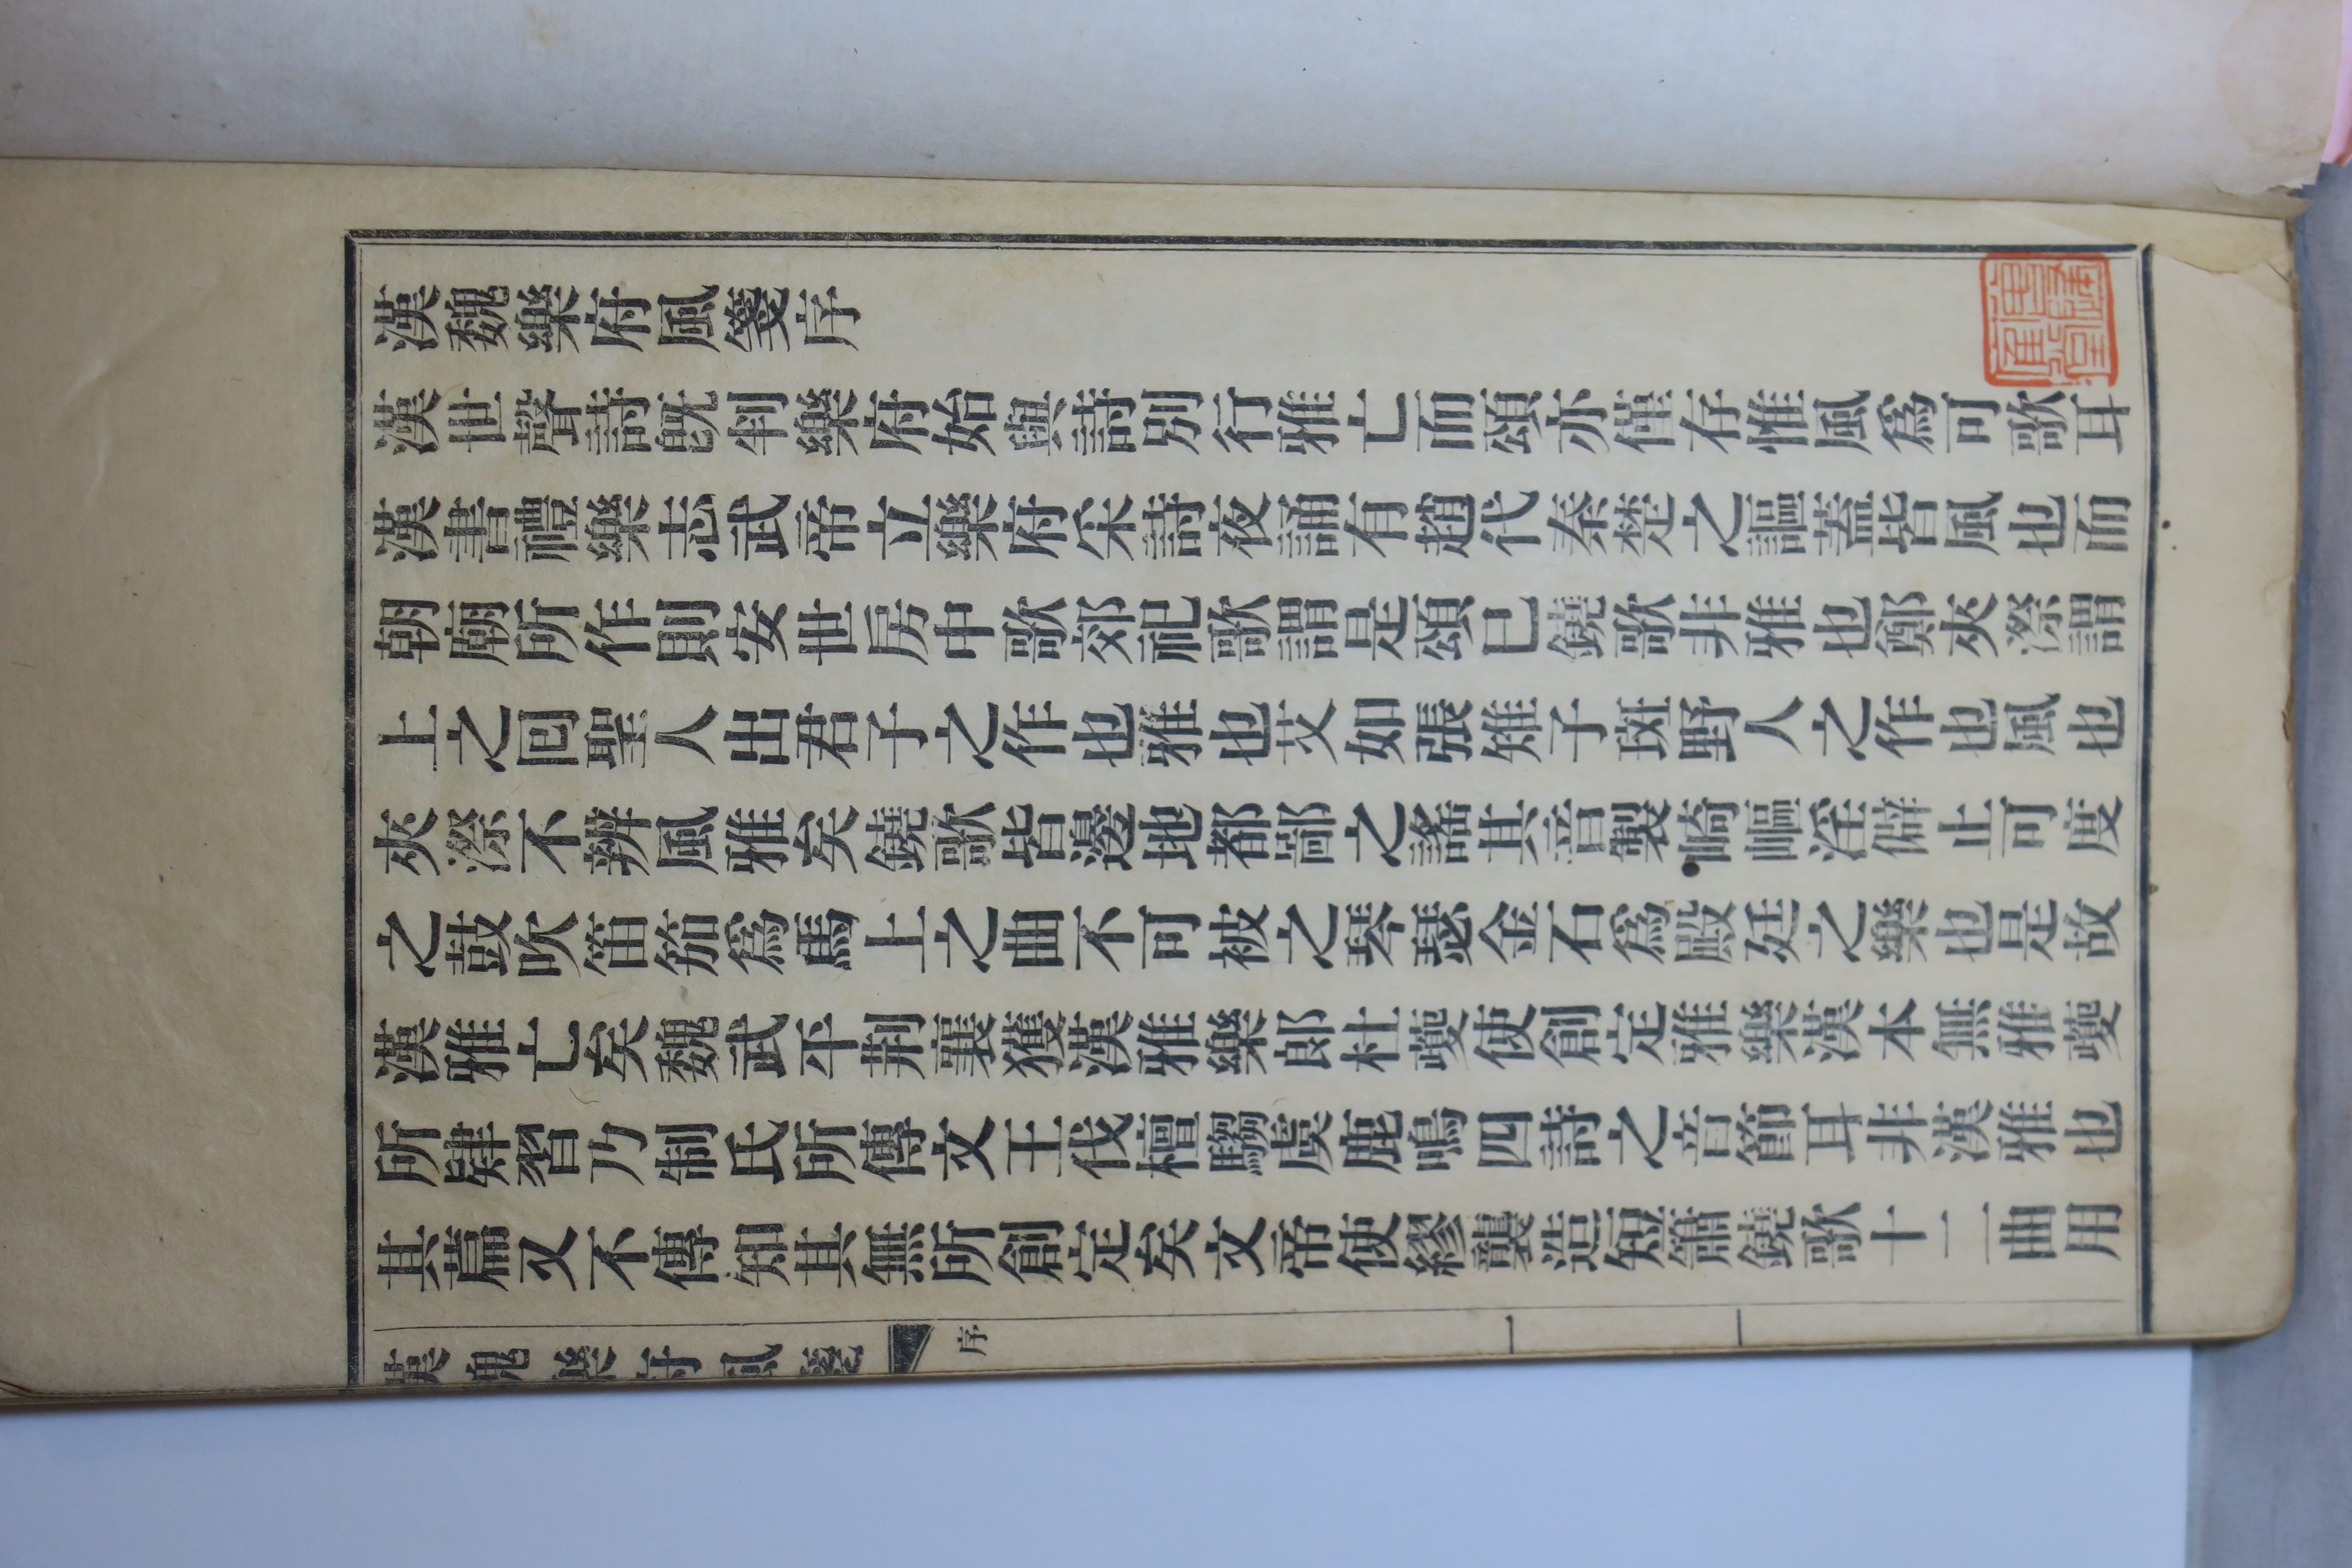 漢魏樂府風箋序
漢世聲詩既判樂府始與詩別行雅亡而頌亦僅存惟風爲可歌耳
漢書禮樂志武帝立樂府采詩夜誦有趙代秦楚之謳蓋皆風也而
朝廟所作則安世房中歌郊祀歌謂是頌已鐃歌非雅也鄭夾漈謂
上之囘聖人出君子之作也雅也艾如張雉子斑野人之作也風也
夾漈不辨風雅矣鐃歌皆邊地都鄙之謠其音製崎嶇淫僻止可度
之鼓吹笛笳爲馬上之曲不可被之琴瑟金石爲殿廷之樂也是故
漢雅亡矣魏武平荆襄獲漢雅樂郎杜夔使創定雅樂漢本無雅夔
所肄習乃制氏所傳文王伐檀騶虞鹿鳴四詩之音節耳非漢雅也
其篇又不傳知其無所創定矣文帝使繆襲造短簫鐃歌十二曲用
漢魏樂府風箋 序 一